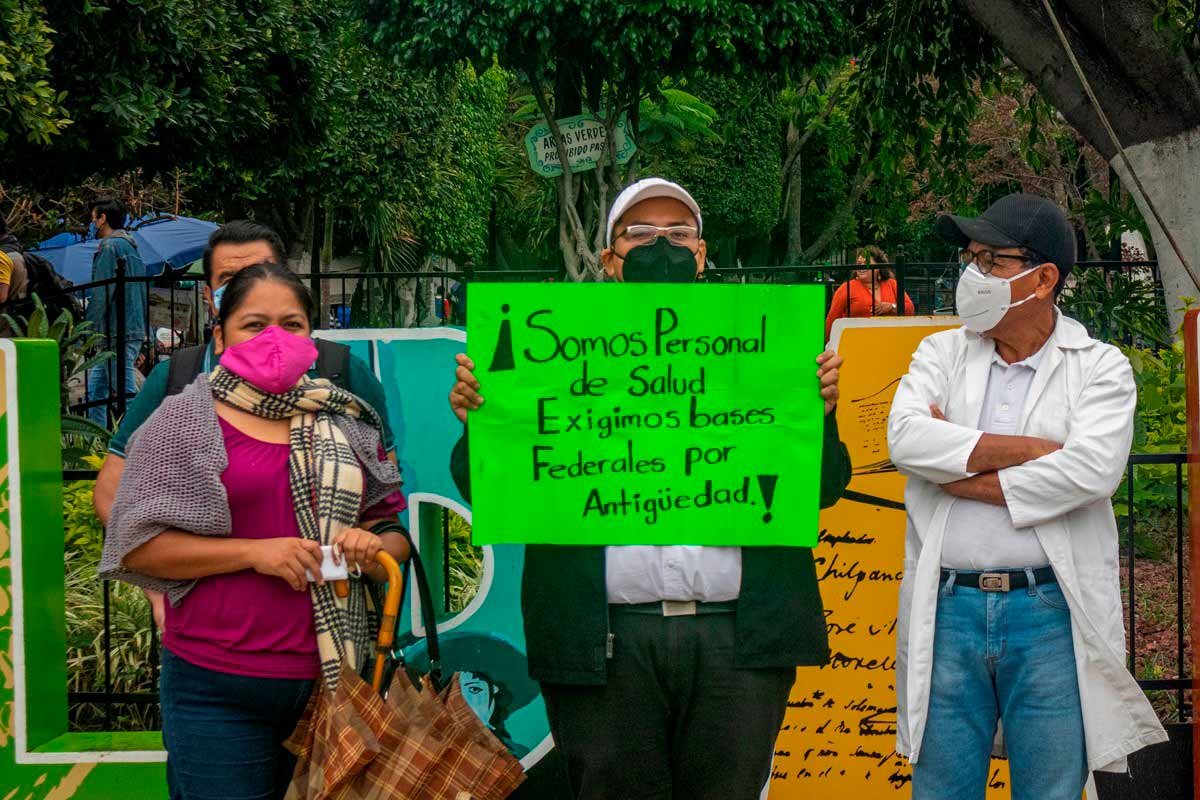 AREAS VERDES
PROHIBIDO PASA
¡Somos Personal
de Salud
Exigimos bases
Federales por
Antigüedad.!
Chilpanc
José M
Morelo